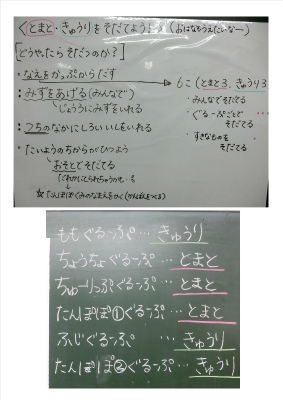 〈とまと・きゅうりをそだてよう〉(おはなもうえたいなー)
どうやったらそだつのか?
・なえをかっぷからだす
6こ(とまと3.きゅうり3
・みずをあげる(みんなで)
・みんなでそだてる
じょうろにみずをいれる
・ぐるーぷごとでそだてる
・つちのなかにしろいいしをいれる
・すきなものをそだてる
・たいようのちからがひつよう
おそとでそだてる
☆たんぽぽぐみのなまえをかく(かんばんをつくる)
ももぐるーぷ…きゅうり
ちょうちょぐるーぷ…とまと
ちゅーりっぷぐるーぷ…とまと
たんぽぽ①ぐるーぷ…とまと
ふじぐるーぷ…きゅうり
たんぽぽ②ぐるーぷ…きゅうり